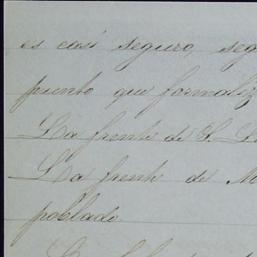 es casi seguro, seg
puente que formaliz
La frente de S. L
La frente de M
poblado